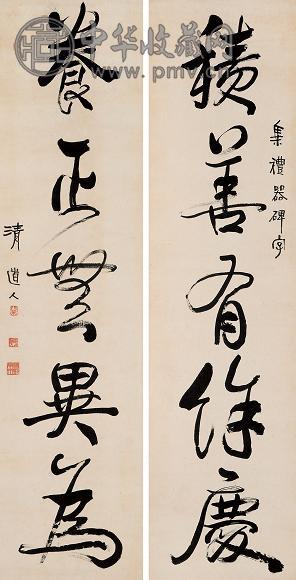 中华收藏网
www.pmv.cn
集禮器碑字
積善有餘慶
養正無異為
清道人